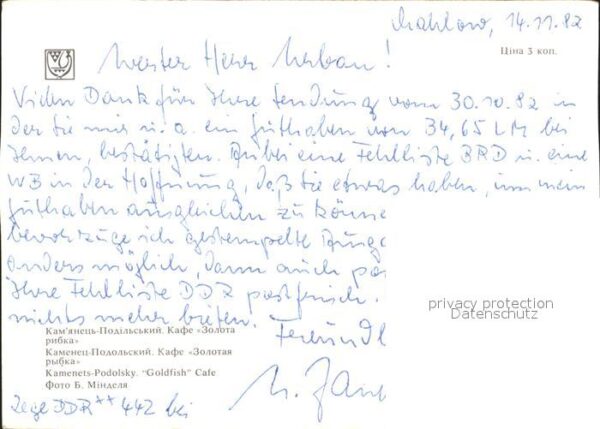 Mahlow, 14.11.82
Ціна 3 коп.
Werter Herr Urban!
Vielen Dank für Ihre Sendung vom 30.10.82 in
der Sie mir u. a. ein Guthaben von 34,65 LM bei
Ihnen, bestätigten. Anbei eine Fehlliste BRD u. eine
WB in der Hoffnung, daß Sie etwas haben, um mein
Guthaben ausgleichen zu könne
bevorzuge ich gestempelte Ausge
anders möglich, dann auch pos
Ihre Fehlliste DDR postfrisch.
nichts mehr bieten.
privacy protection
Datenschutz
Freundl
Кам'янець-Подільський. Кафе «Золота
рибка»
Каменец-Подольский. Кафе «Золотая
рыбка»
Kamenets-Podolsky. "Goldfish" Cafe
Фото Б. Мінделя
Lege DDR** 442 bei